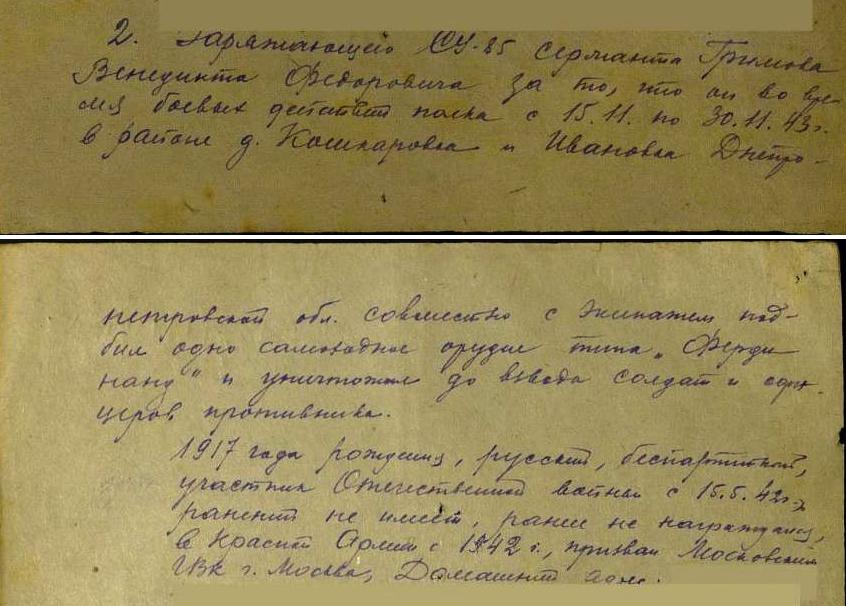 2. Заряжающего СУ-85 сержанта Громова
Венедикта Федоровича за то, что он во вре-
мя боевых действий полка с 15.11. по 30.11.43г.
в районе д. Кошкаровка и Ивановка Днепро-
петровской обл. совместно с экипажем под-
бил одно самоходное орудие типа „Ферди
нанд" и уничтожил до взвода солдат и офи-
церов противника.
1917 года рождения, русский, беспартийный,
участник Отечественной войны с 15.5.42г.,
ранений не имеет, ранее не награждался,
в Красной Армии с 1942 г., призван Московским
ГВК г. Москва, Домашний адрес.